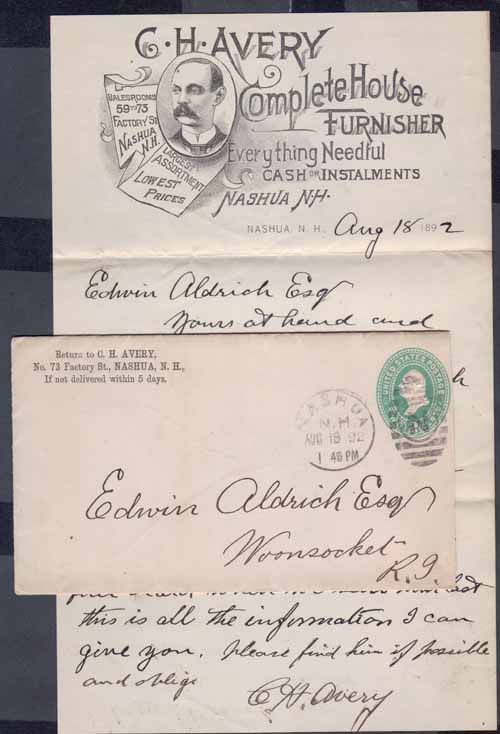 C·H·AVERY
Complete House
FURNISHER
Everything Needful
CASH OR INSTALMENTS
NASHUA N·H·
SALESROOMS
59 TO 73
FACTORY St
NASHUA
N.H.
LARGEST
ASSORTMENT
LOWEST
PRICES
NASHUA, N. H., Aug 18 1892
Edwin Aldrich Esq
Yours at hand and
Return to C. H. AVERY,
No. 73 Factory St., NASHUA, N. H.,
If not delivered within 5 days.
UNITED STATES POSTAGE
NASHUA
N.H.
AUG 18 92
1 46 PM
Edwin Aldrich Esq
Woonsocket
R.I
this is all the information I can
give you. please find him if possible
and oblige
C H. Avery